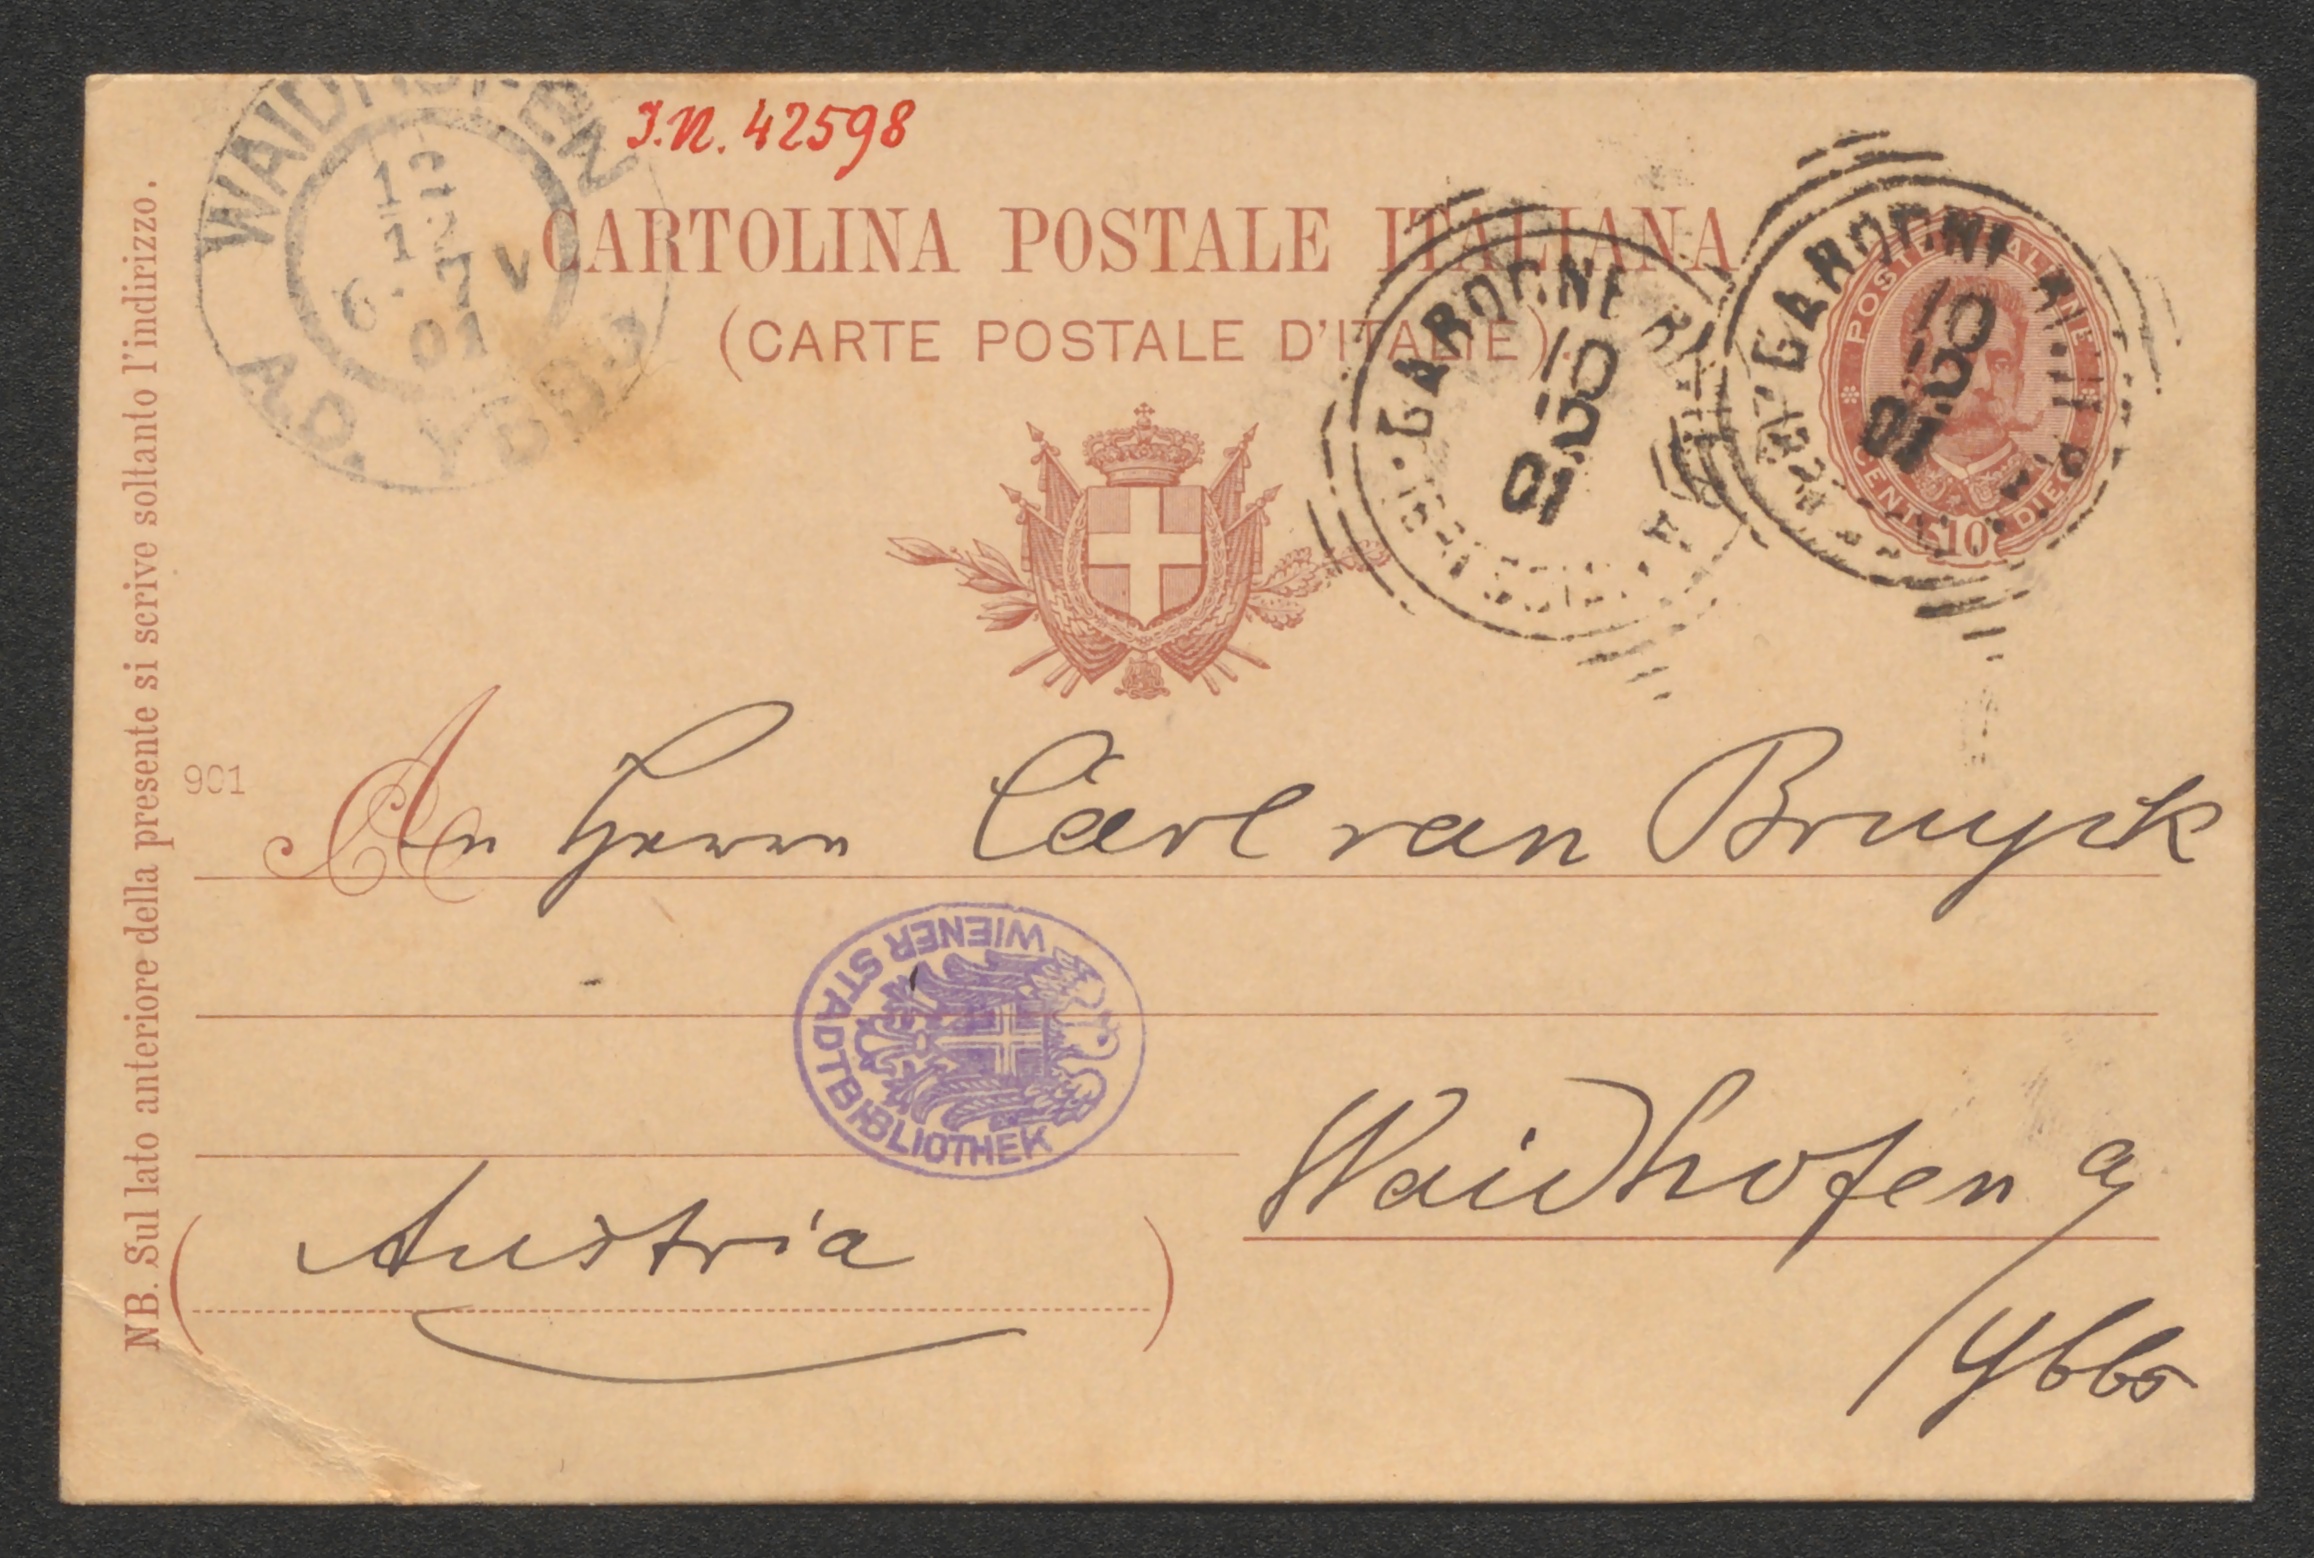 WAIDHOFEN
12
12
6-7V
01
A.D. YBBS
I.N. 42598
CARTOLINA POSTALE ITALIANA
(CARTE POSTALE D'ITALIE)
GARDONE
10
12
01
GARDONE
10
12
01
POSTE ITALIANE
CENT. 10 DIECI
NB. Sul lato anteriore della presente si scrive soltanto l'indirizzo.
901
An Herrn Carl van Bruyck
WIENER STADTBIBLIOTHEK
Waidhofen a/
Austria
Ybbs